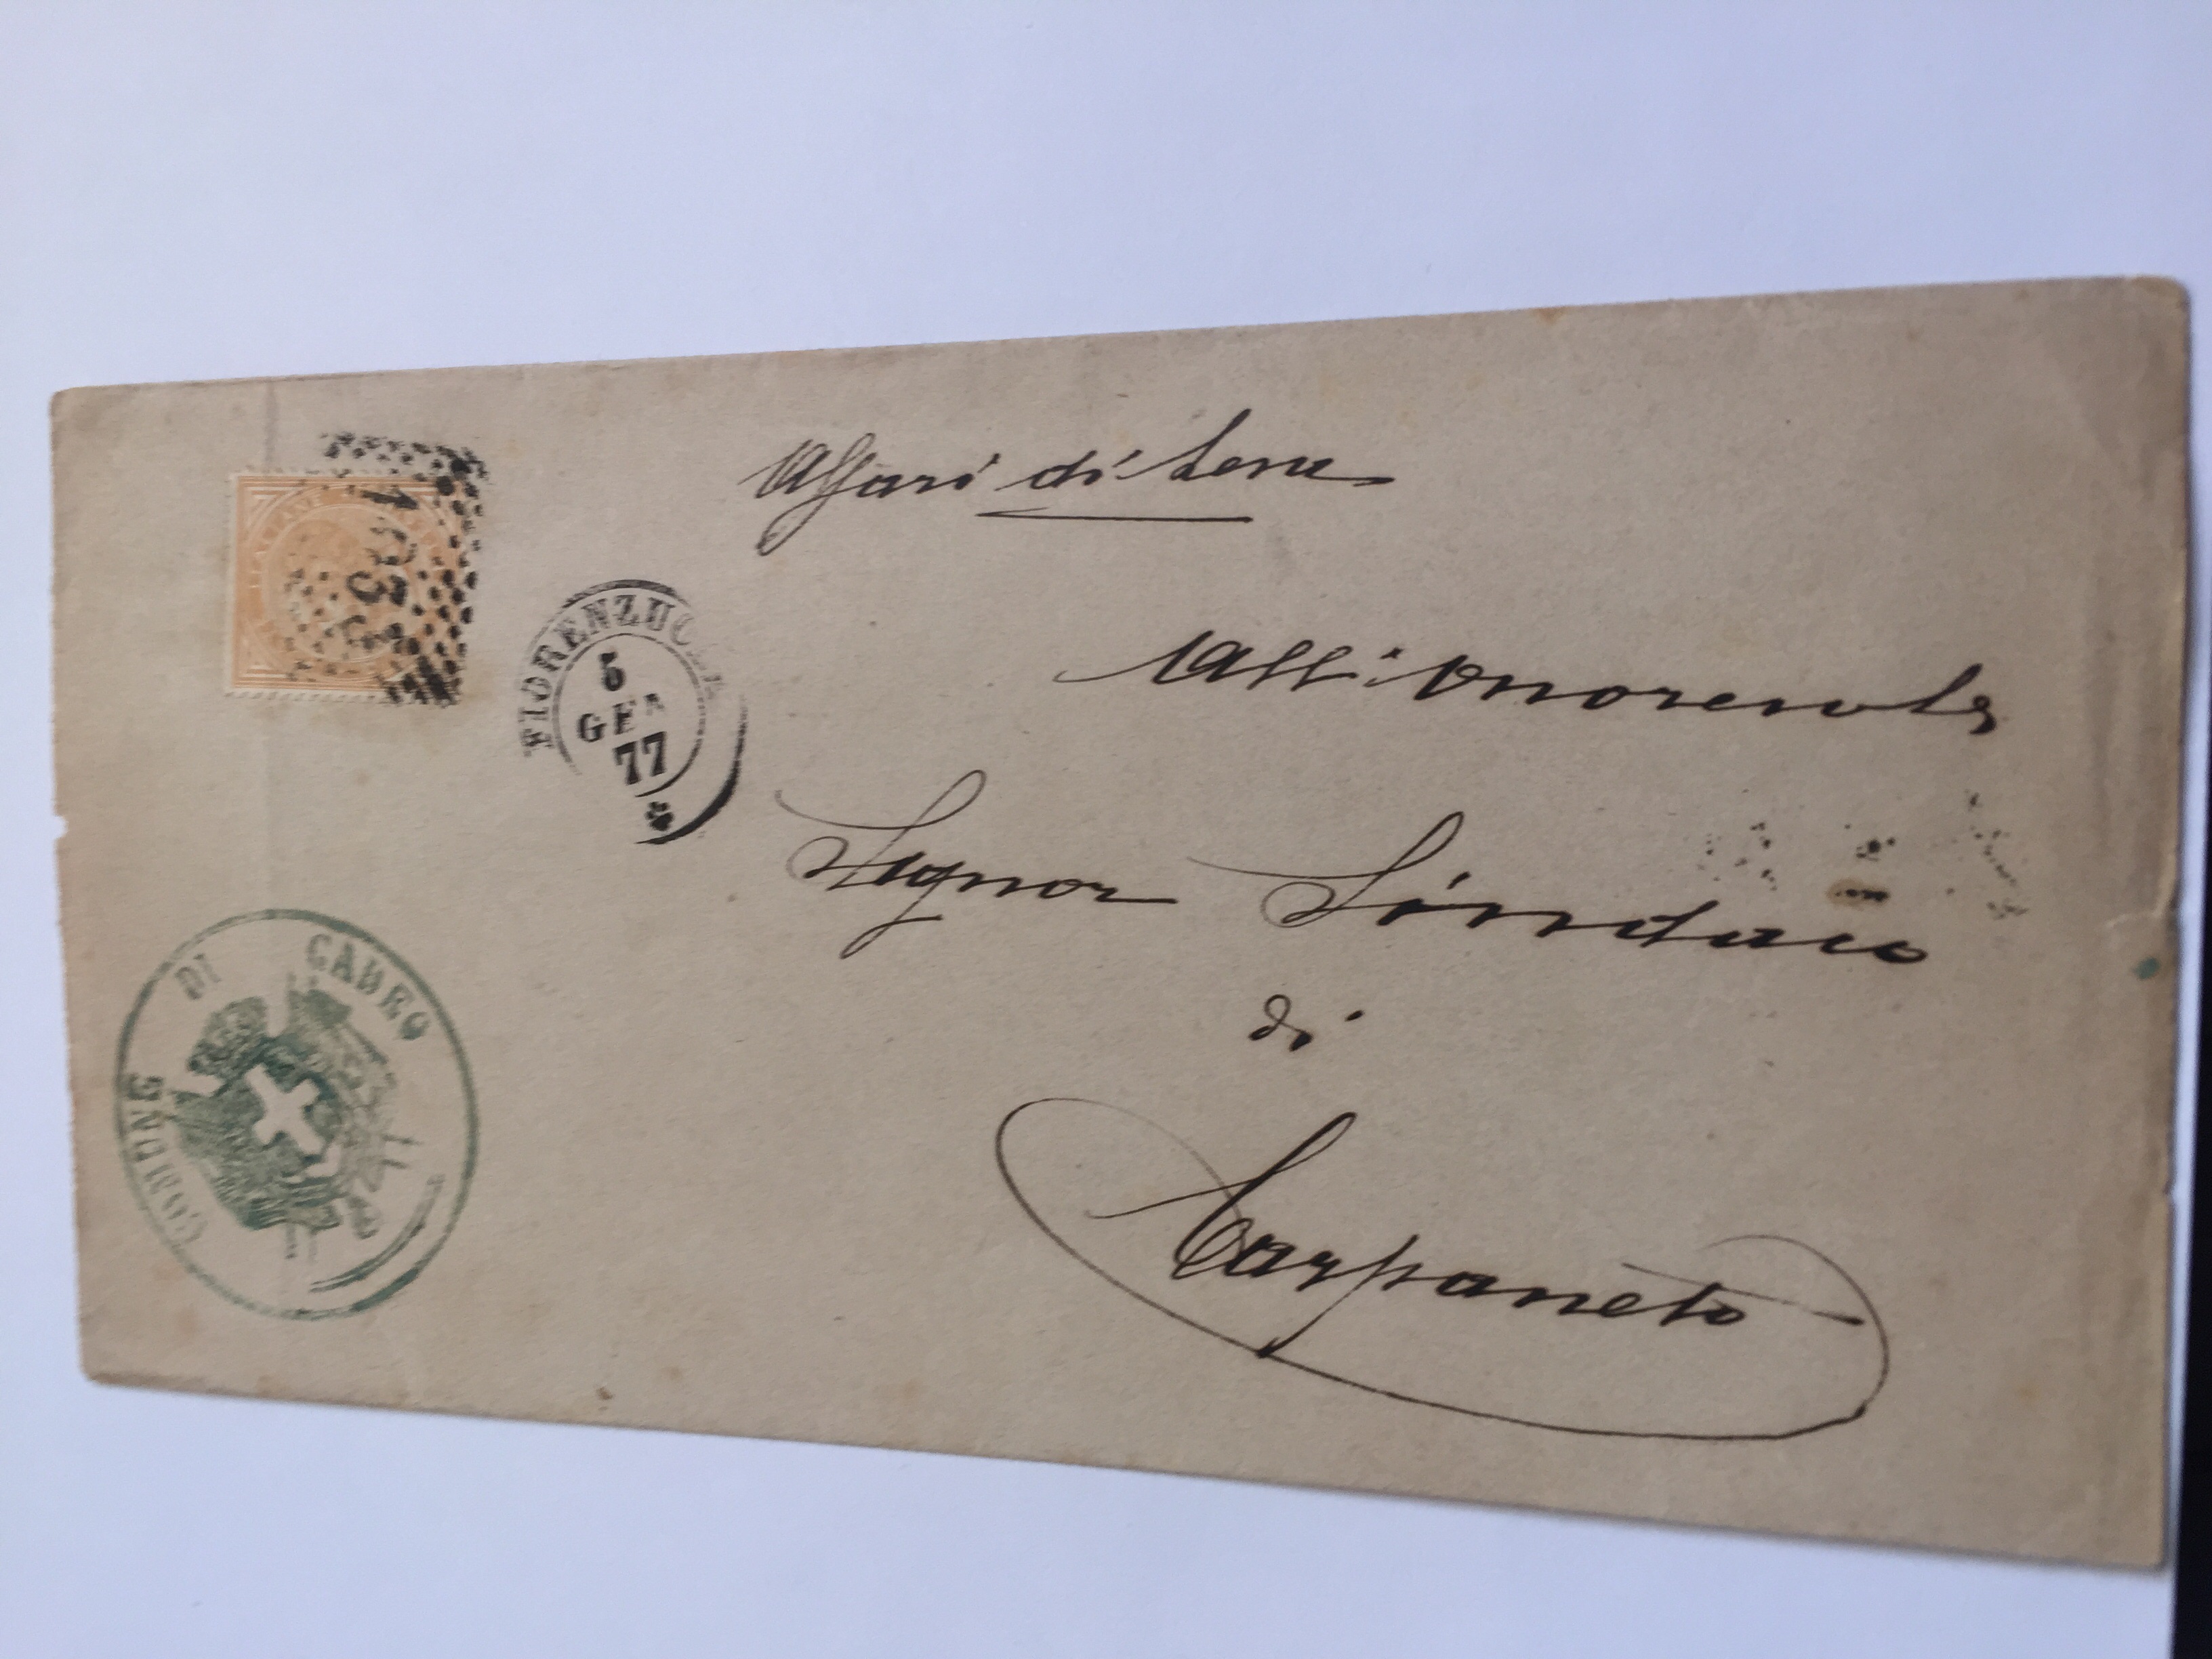 COMUNE DI CADEO
FIORENZUOLA
5
GEN
77
Affari di Leva
All'Onorevole
Signor Sindaco
di
Carpaneto